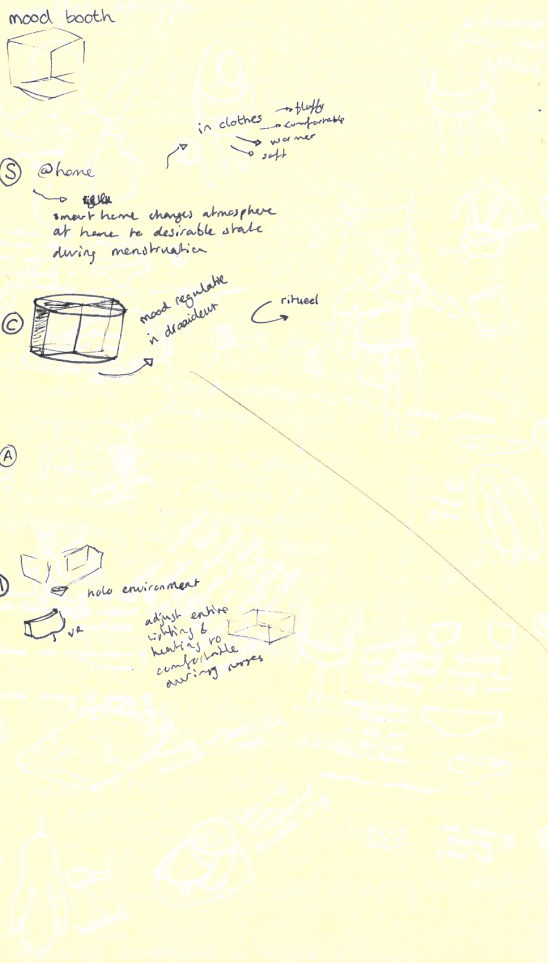 mood booth
in clothes
fluffy
comfortable
warmer
soft
S @home
smart home changes atmosphere
at home to desirable state
during menstruation
C
mood regulatie
in draaideur
ritueel
A
holo environment
VR
adjust entire
lighting &
heating to
comfortable
during